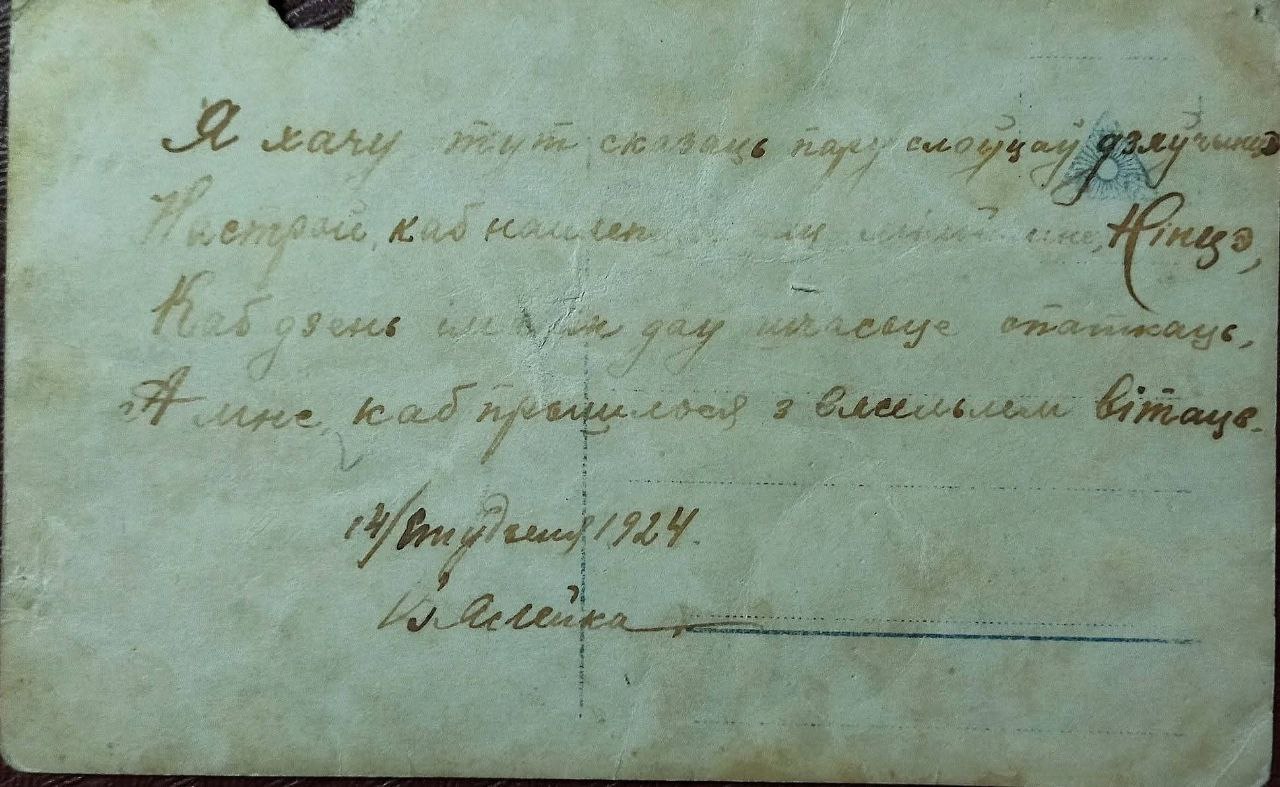 Я хачу тут сказаць пару слоўцаў дзяўчынцэ
Настрой, каб мне, Нінцэ,
Каб дзень дау шчасьце спаткаць,
А мне, каб прышлося з вясельлем вітаць.
14/Студзеня 1924.